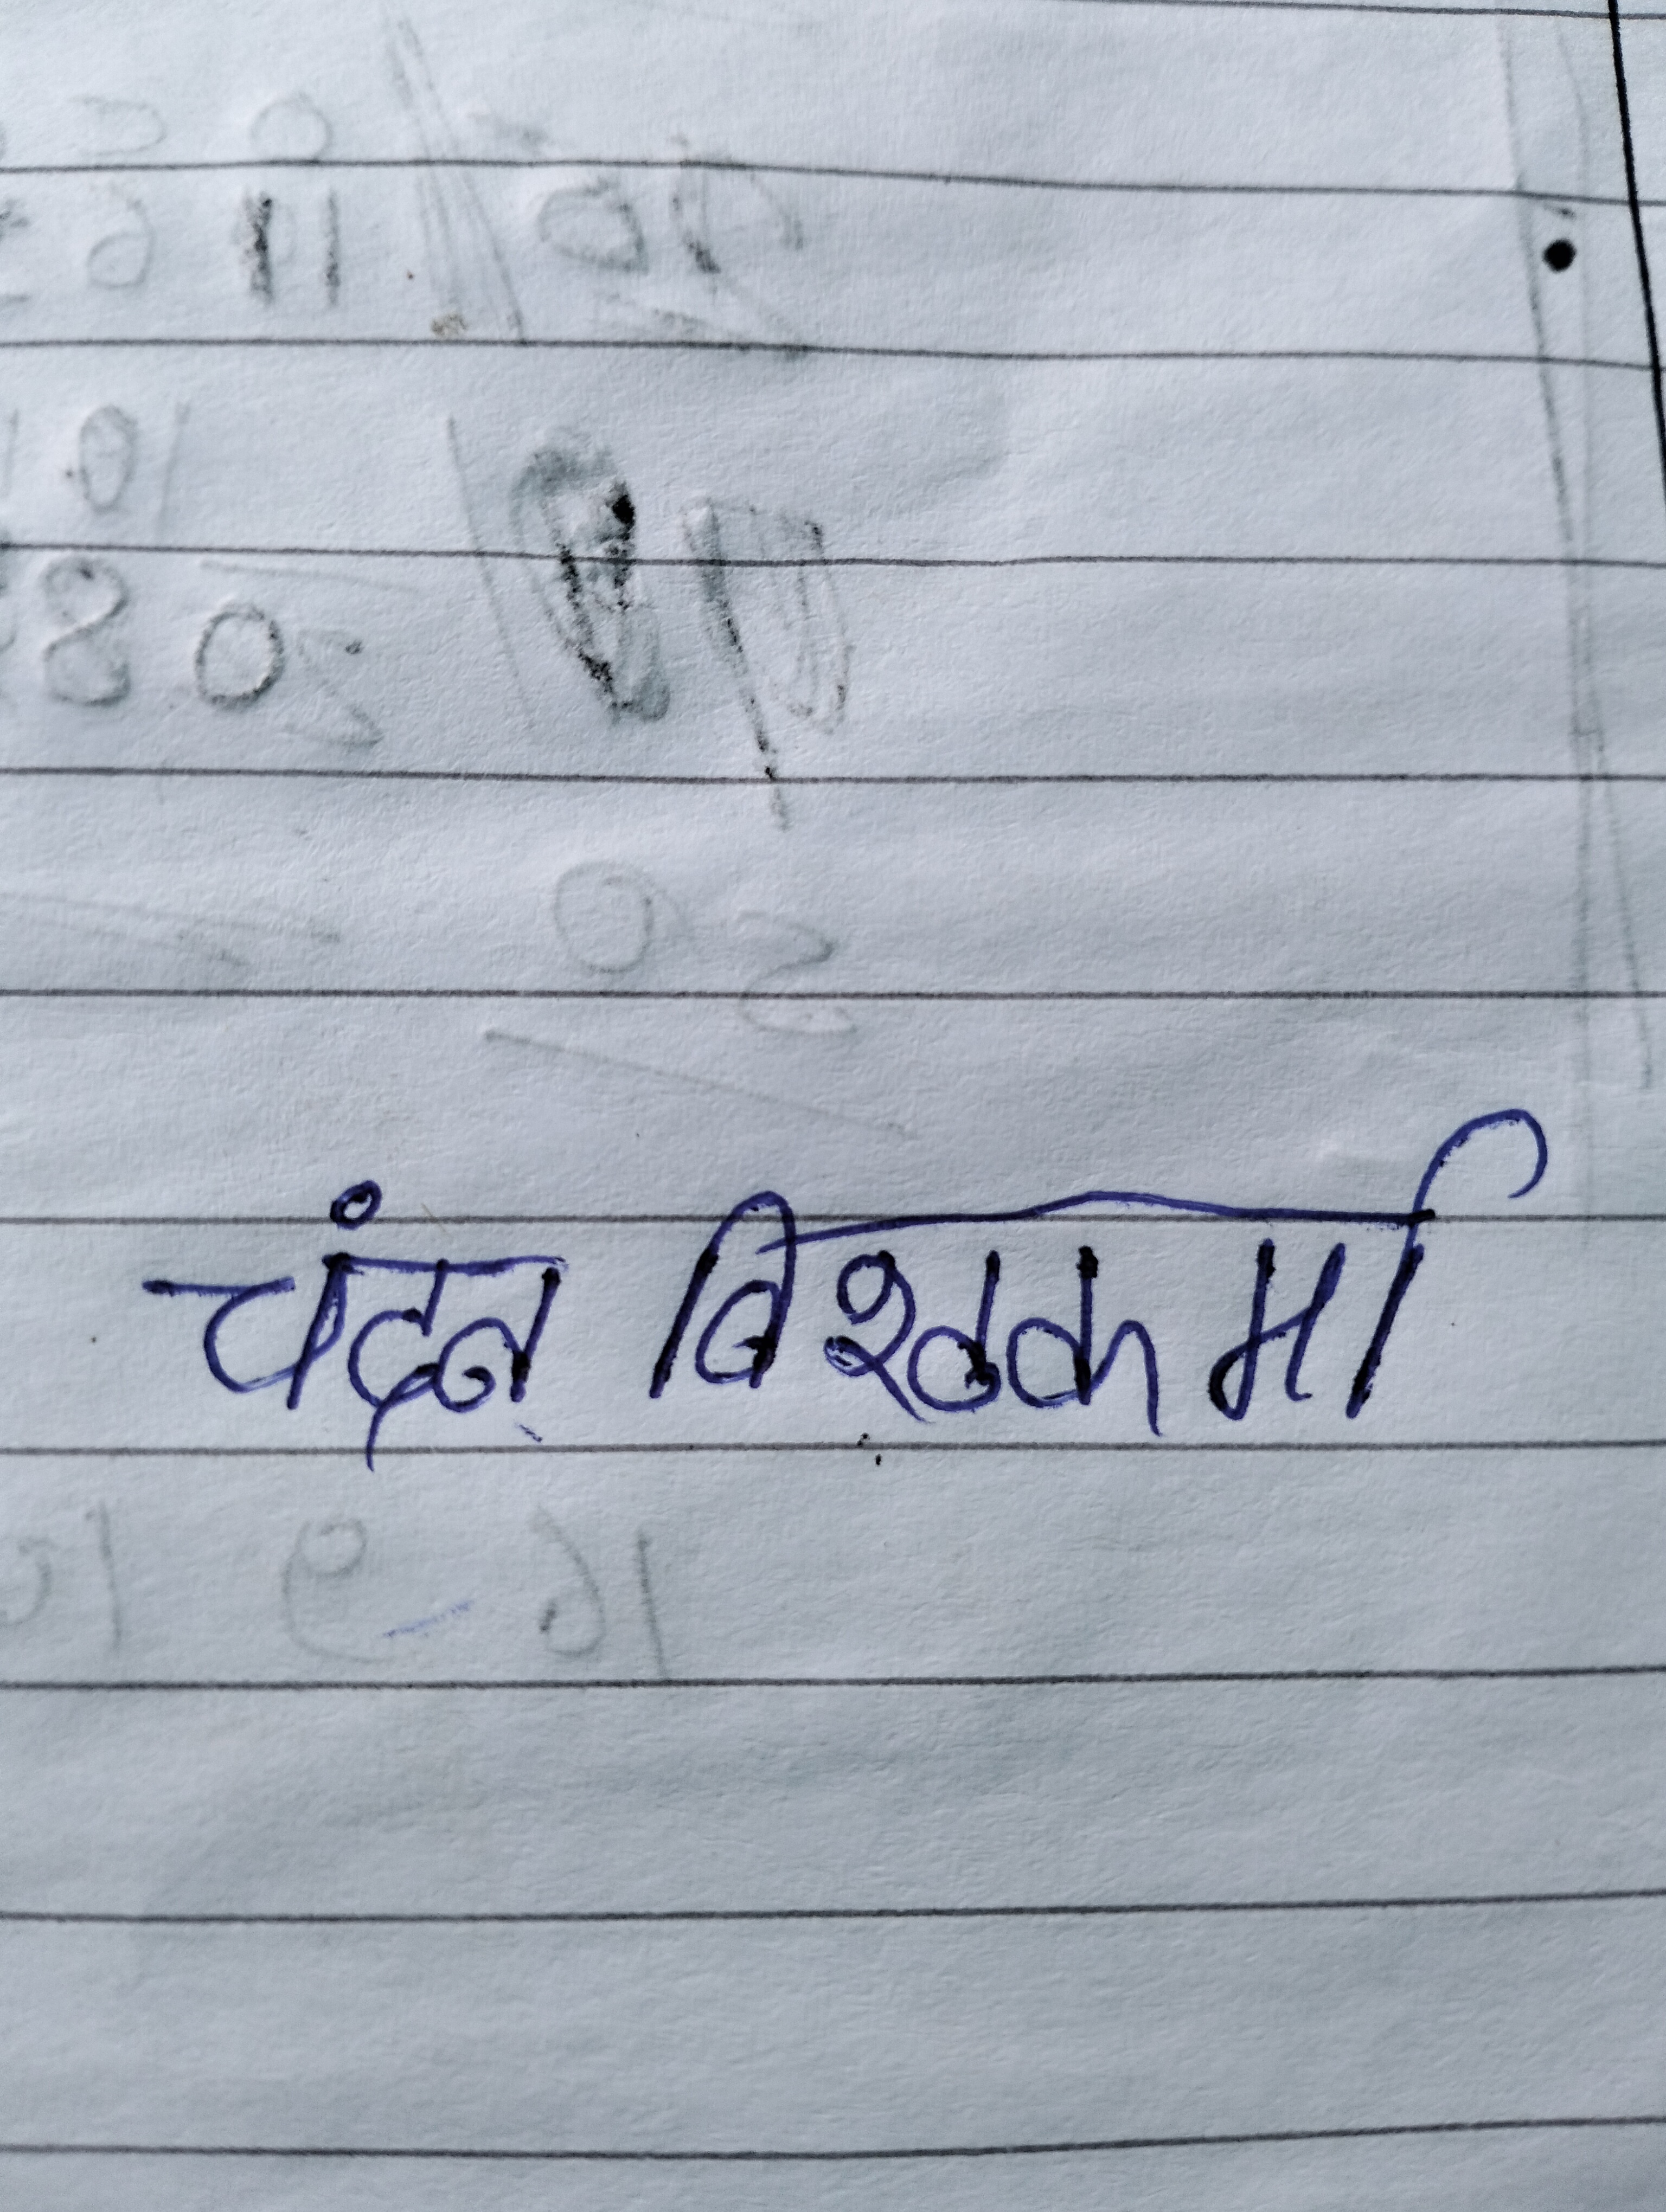 चंदन विश्वकर्मा